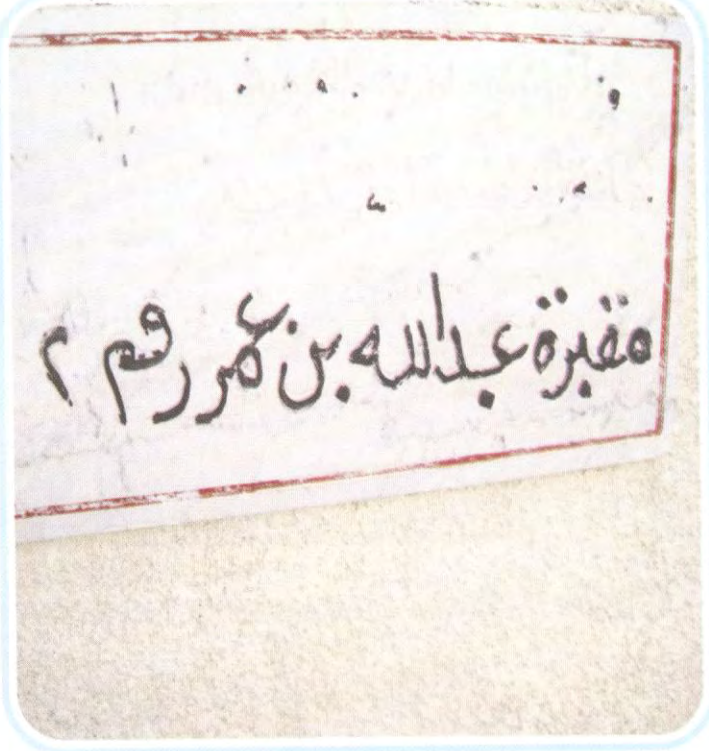 مقبرة عبدالله بن عمر رقم ٢